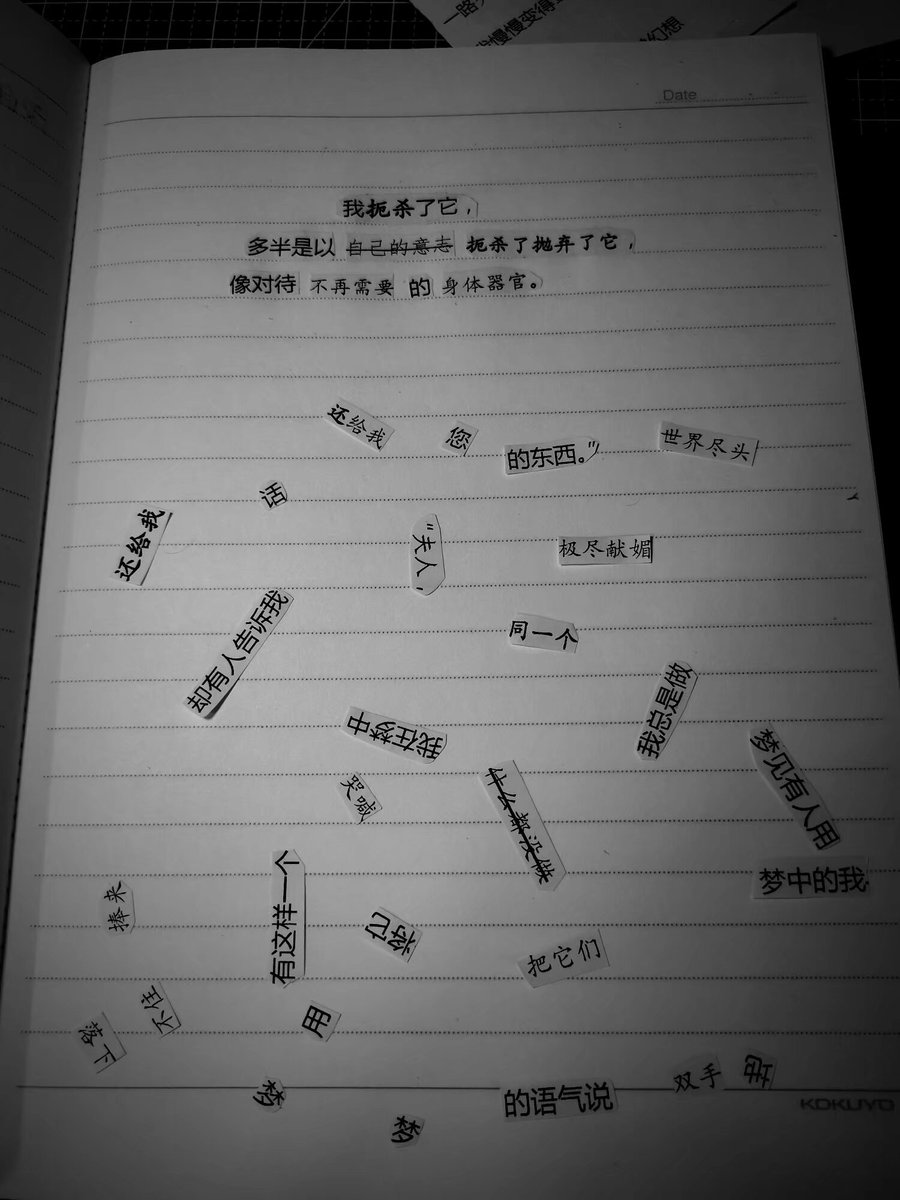 一路
慢慢变得
幻想
Date
我扼杀了它，
多半是以 自己的意志 扼杀了抛弃了它，
像对待 不再需要 的 身体器官。
还给我
您
的东西。”
世界尽头
话
还给我
“夫人，
极尽献媚
却有人告诉我
同一个
我在梦中
我总是做
哭喊
什么都没做
梦见有人用
梦中的我
捧来
有这样一个
将它
把它们
不住
用
下落
梦
梦
的语气说
双手
地
KOKUYO